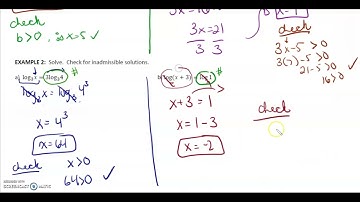 check
b>0 , ∴ x=5 ✓
3x=21
3 3
x=7
check
3x-5>0
3(7)-5>0
21-5>0
16>0 ✓
EXAMPLE 2: Solve. Check for inadmissible solutions.
a) log₃x = 3log₃4
x = 4³
x=64
check x>0
64>0 ✓
b) log(x + 3) = log1
x+3 = 1
x = 1-3
x = -2
check